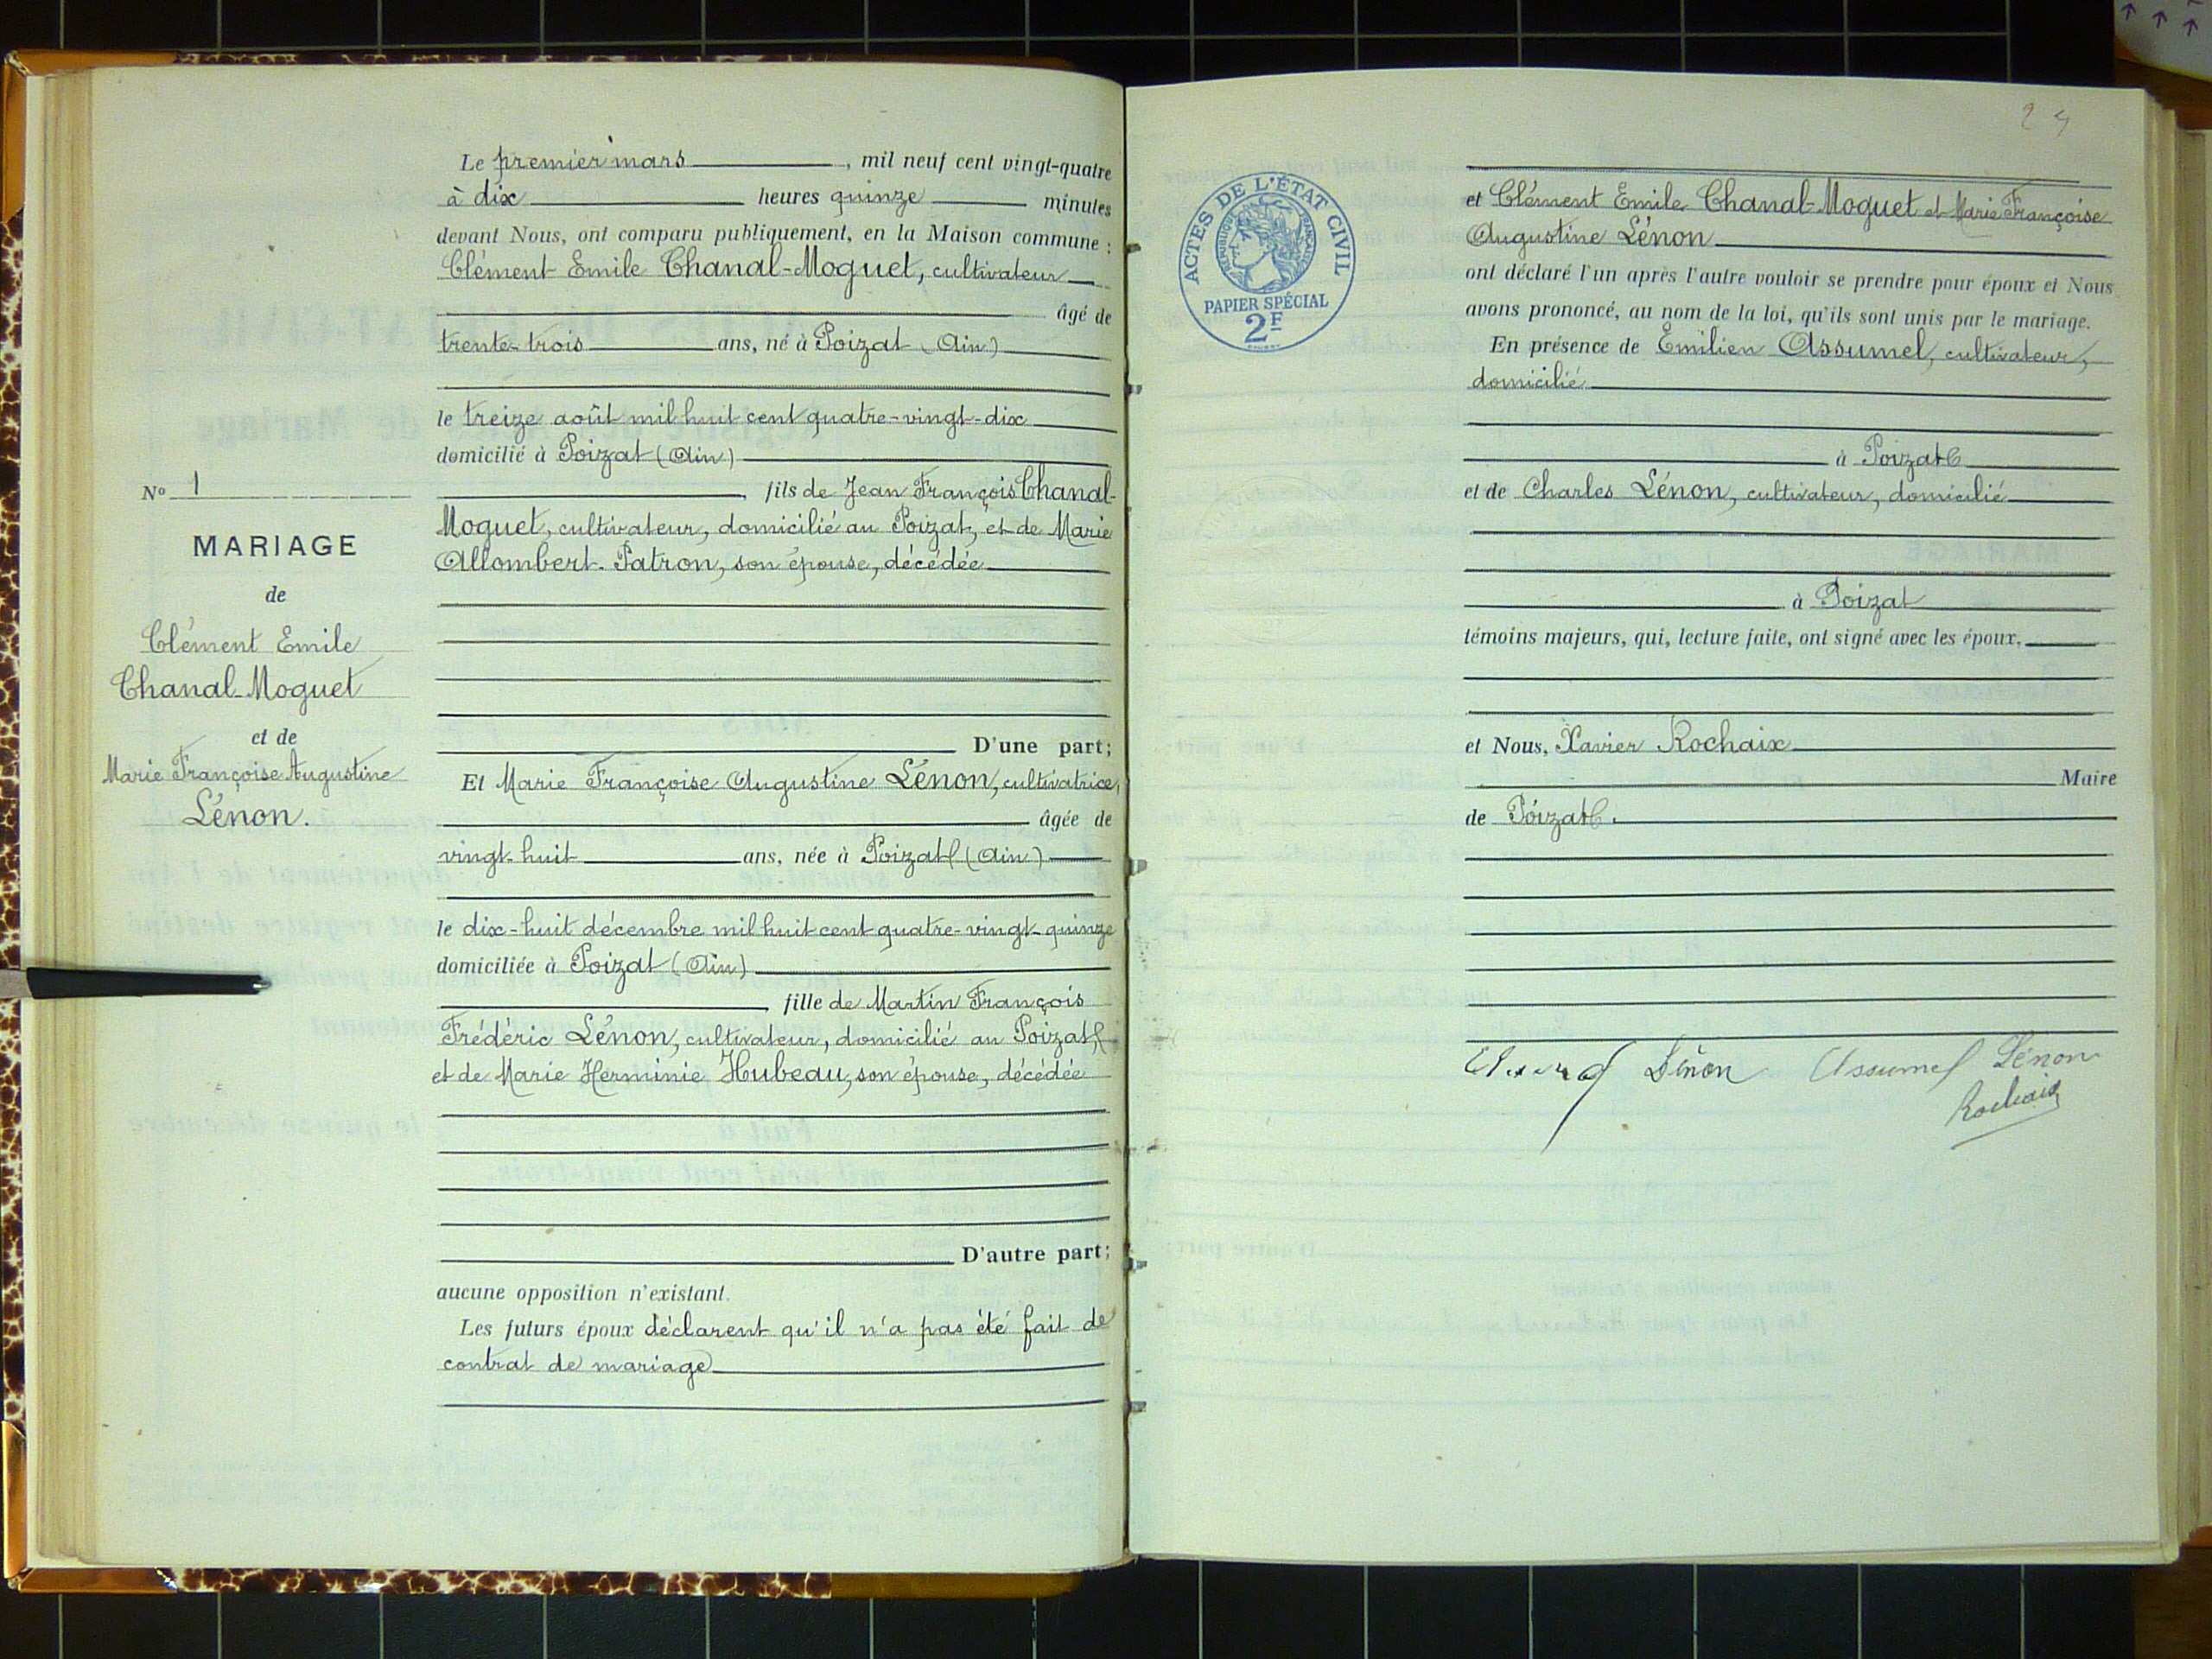 Le premier mars, mil neuf cent vingt-quatre
à dix heures quinze minutes
devant Nous, ont comparu publiquement, en la Maison commune :
Clément Emile Chanal-Moguet, cultivateur
âgé de
trente-trois ans, né à Poizat (Ain)
le treize août mil huit cent quatre-vingt-dix
domicilié à Poizat (Ain)
fils de Jean François Chanal-
Moguet, cultivateur, domicilié au Poizat, et de Marie
Allombert-Patron, son épouse, décédée
D'une part;
Et Marie Françoise Augustine Lénon, cultivatrice,
âgée de
vingt-huit ans, née à Poizat (Ain)
le dix-huit décembre mil huit cent quatre-vingt-quinze
domiciliée à Poizat (Ain)
fille de Martin François
Frédéric Lénon, cultivateur, domicilié au Poizat,
et de Marie Herminie Hubeau, son épouse, décédée
D'autre part;
aucune opposition n'existant.
Les futurs époux déclarent qu'il n'a pas été fait de
contrat de mariage
N° 1
MARIAGE
de
Clément Emile
Chanal-Moguet
et de
Marie Françoise Augustine
Lénon.
ACTES DE L'ÉTAT CIVIL
RÉPUBLIQUE FRANÇAISE
PAPIER SPÉCIAL
2F
et Clément Emile Chanal-Moguet et Marie Françoise
Augustine Lénon
ont déclaré l'un après l'autre vouloir se prendre pour époux et Nous
avons prononcé, au nom de la loi, qu'ils sont unis par le mariage.
En présence de Emilien Assumel, cultivateur,
domicilié
à Poizat
et de Charles Lénon, cultivateur, domicilié
à Poizat
témoins majeurs, qui, lecture faite, ont signé avec les époux,
et Nous, Xavier Rochaix
Maire
de Poizat.
Lénon Assumel Lénon
Rochaix